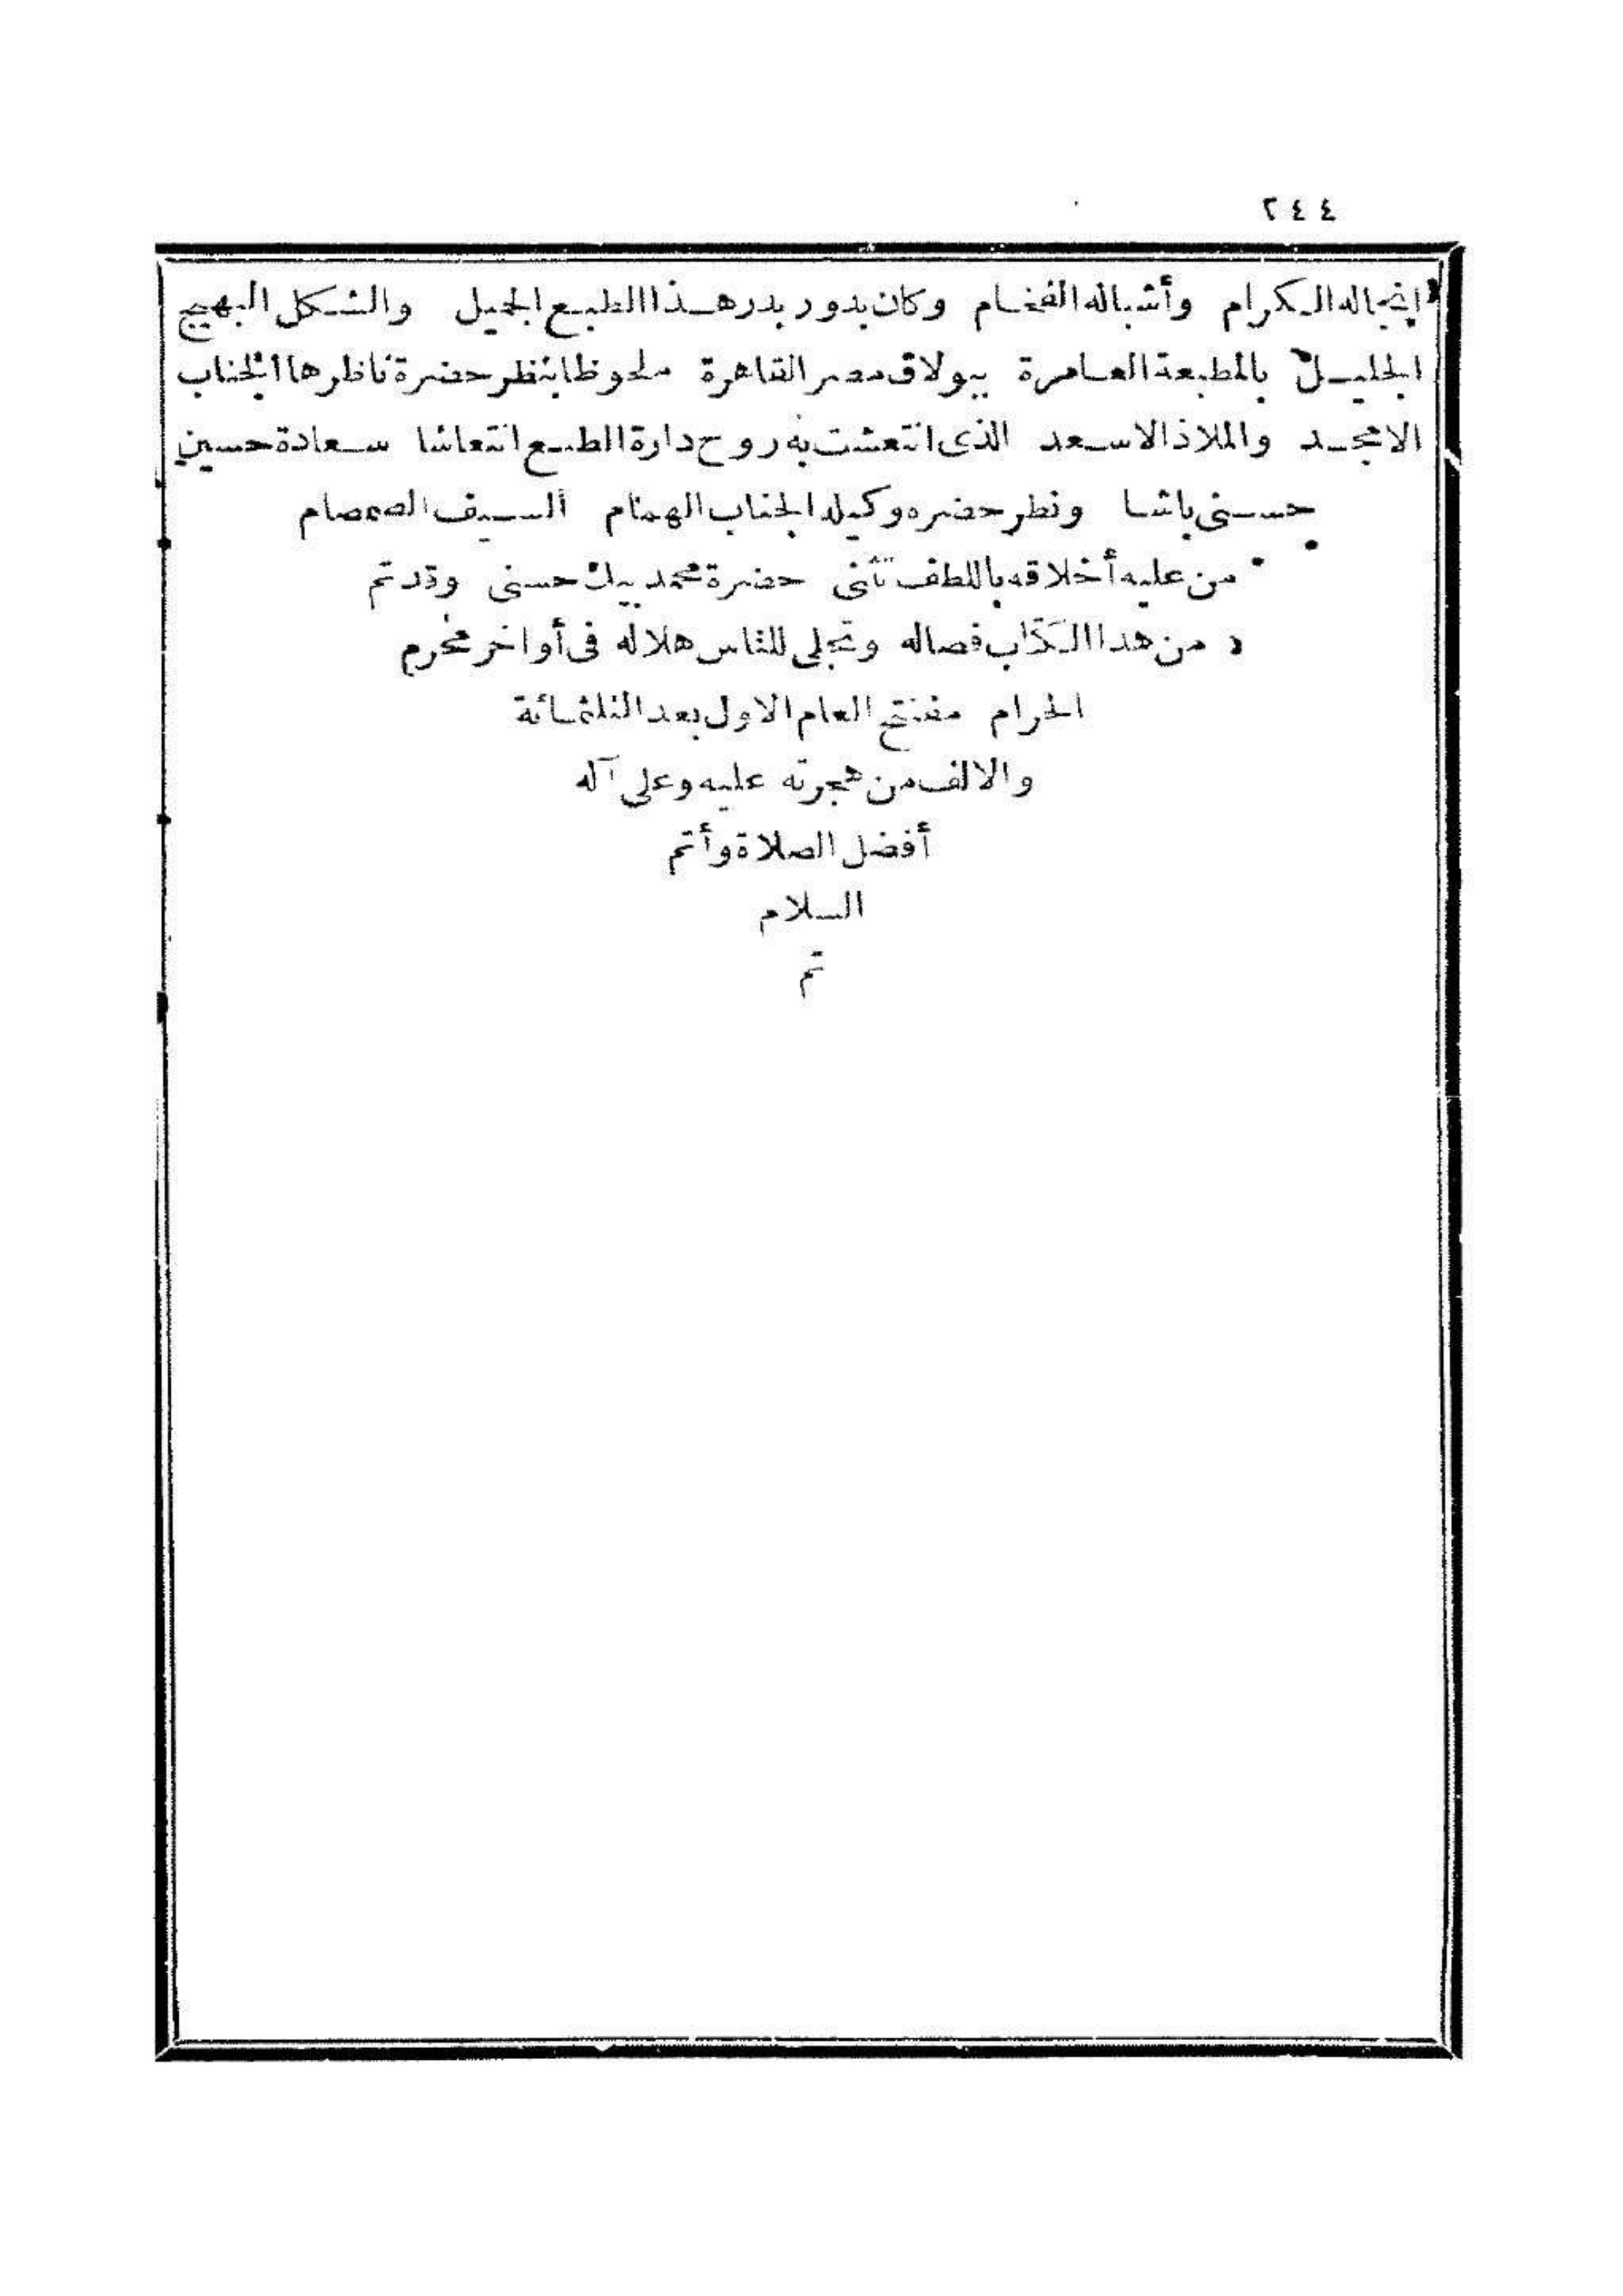 ٢٤٤
انجاله الكرام وأشباله الفخام وكان بدور بدر هذا الطبع الجميل والشكل البهيج
الجليل بالمطبعة العامرة ببولاق مصر القاهرة ملحوظا بنظر حضرة ناظرها الجناب
الامجد والملاذ الاسعد الذى انتعشت به روح دارة الطبع انتعاشا سعادة حسين
حسنى باشا ونظر حضره وكيله الجناب الهمام السيف الصمصام
من عليه أخلاقه باللطف تثنى حضرة محمد بيك حسنى وقد تم
من هذا الكتاب فصاله وتجلى للناس هلاله فى أواخر محرم
الحرام مفتتح العام الاول بعد الثلثمائة
والالف من هجرته عليه وعلى آله
أفضل الصلاة وأتم
السلام
تم